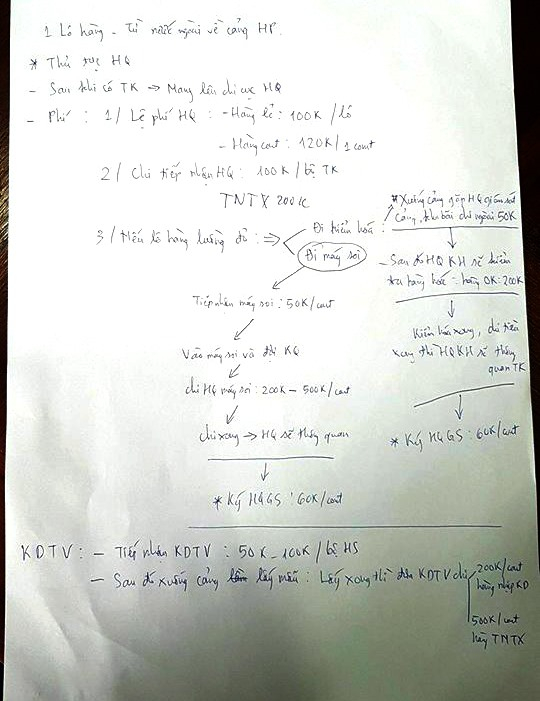 1 Lô hàng - Từ nước ngoài về cảng HP.
* Thủ tục HQ
- Sau khi có TK → Mang lên chi cục HQ
- Phí : 1/ Lệ phí HQ : - Hàng lẻ : 100K / lô
- Hàng cont : 120K / 1 cont
2/ Chi tiếp nhận HQ : 100K / bộ TK
TNTX 200K
3/ Nếu lô hàng luồng đỏ : ⇒
Đi kiểm hóa :
Đi máy soi
Tiếp nhận máy soi : 50K/cont
Vào máy soi và đợi KQ
chi HQ máy soi : 200K - 500K/cont
chi xong → HQ sẽ thông quan
* Ký HQGS : 60K/cont
* Xuống cảng gặp HQ giám sát
cảng, kho bãi chi ngoài 50K
- Sau đó HQ KH sẽ kiểm
tra hàng hoá : hàng OK : 200K
Kiểm hóa xong, chi tiền
xong thì HQ KH sẽ thông
quan TK
* Ký HQGS : 60K/cont
KDTV : - Tiếp nhận KDTV : 50K - 100K / bộ HS
- Sau đó xuống cảng lấy mẫu : Lấy xong thì đưa KDTV chi
200K/cont
hàng nhập KD
500K/cont
hàng TNTX